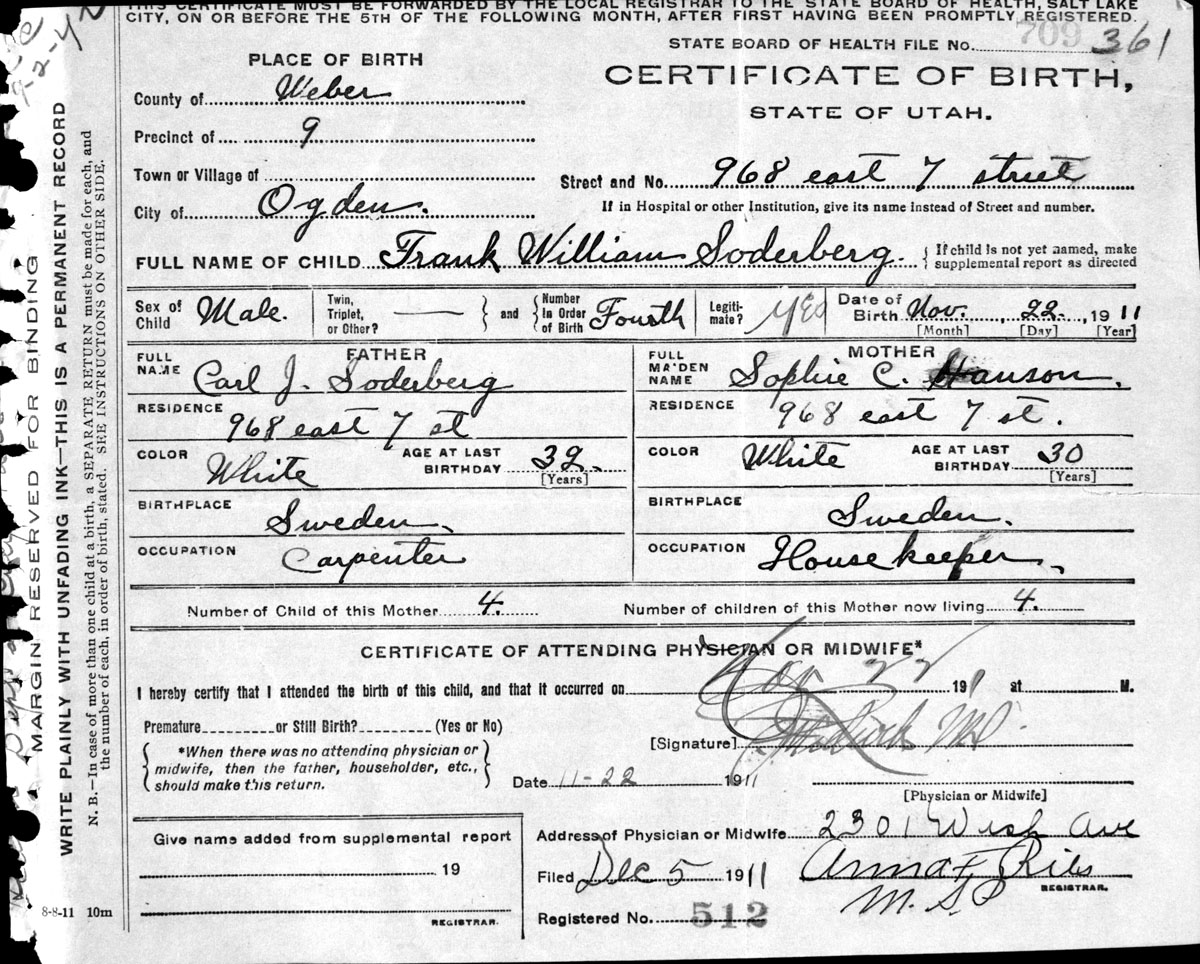 THIS CERTIFICATE MUST BE FORWARDED BY THE LOCAL REGISTRAR TO THE STATE BOARD OF HEALTH, SALT LAKE
CITY, ON OR BEFORE THE 5TH OF THE FOLLOWING MONTH, AFTER FIRST HAVING BEEN PROMPTLY REGISTERED.
STATE BOARD OF HEALTH FILE No. 709 361
PLACE OF BIRTH
CERTIFICATE OF BIRTH,
STATE OF UTAH.
County of Weber
Precinct of 9
Town or Village of
Street and No. 968 east 7 street
City of Ogden.
If in Hospital or other Institution, give its name instead of Street and number.
FULL NAME OF CHILD Frank William Soderberg. { If child is not yet named, make
supplemental report as directed
Sex of Child Male. Twin, Triplet, or Other? — } and { Number In Order of Birth Fourth Legiti-mate? Yes Date of Birth Nov. 22, 1911
[Month] [Day] [Year]
FATHER
FULL NAME Carl J. Soderberg
RESIDENCE
968 east 7 st
COLOR White AGE AT LAST BIRTHDAY 32.
[Years]
BIRTHPLACE
Sweden.
OCCUPATION
Carpenter
MOTHER
FULL MAIDEN NAME Sophie C. Hanson.
RESIDENCE
968 east 7 st.
COLOR White AGE AT LAST BIRTHDAY 30
[Years]
BIRTHPLACE
Sweden.
OCCUPATION
Housekeeper.
Number of Child of this Mother 4. Number of children of this Mother now living 4.
CERTIFICATE OF ATTENDING PHYSICIAN OR MIDWIFE*
I hereby certify that I attended the birth of this child, and that it occurred on Nov 22 191 at M.
Premature or Still Birth? (Yes or No)
{ *When there was no attending physician or
midwife, then the father, householder, etc.,
should make this return. }
[Signature] MD
Date 11-22 1911
[Physician or Midwife]
Give name added from supplemental report
19
REGISTRAR.
Address of Physician or Midwife 2301 Wash Ave
Filed Dec 5 1911 Anna F Ries
REGISTRAR.
Registered No. 512
8-8-11 10m
MARGIN RESERVED FOR BINDING
WRITE PLAINLY WITH UNFADING INK—THIS IS A PERMANENT RECORD
N. B.—In case of more than one child at a birth, a SEPARATE RETURN must be made for each, and
the number of each, in order of birth, stated. SEE INSTRUCTIONS ON OTHER SIDE.